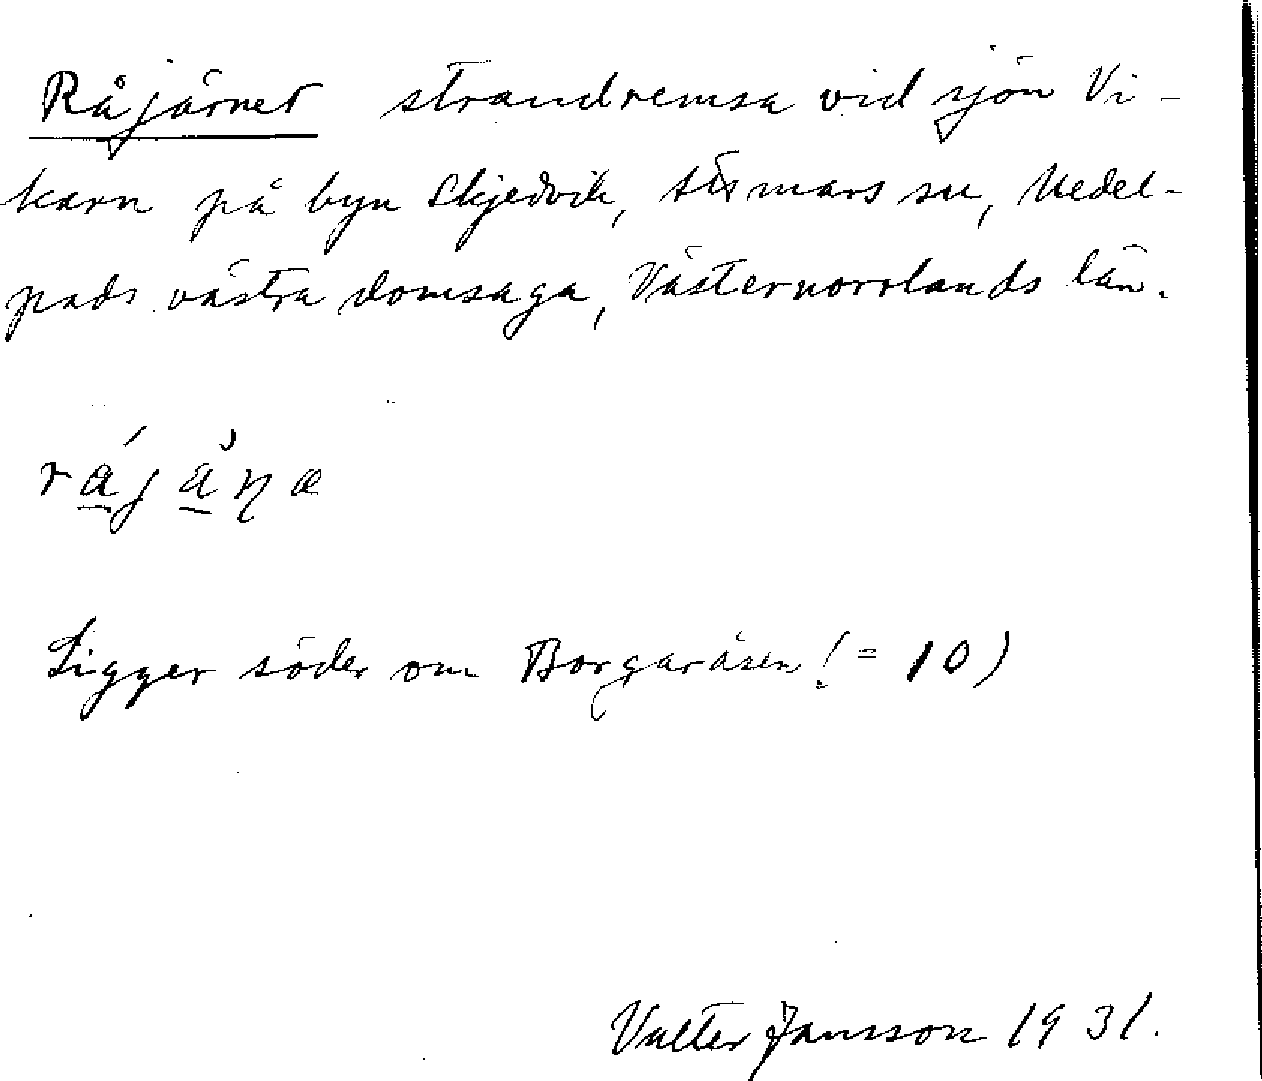 Råjärnet strandremsa vid sjön Vi-
karn på byn Skjedvik, Tuna sn, Medel-
pads västra domsaga, Västernorrlands län.
Ligger söder om Borgaråsen (= 10)
Valter Jansson 1931.